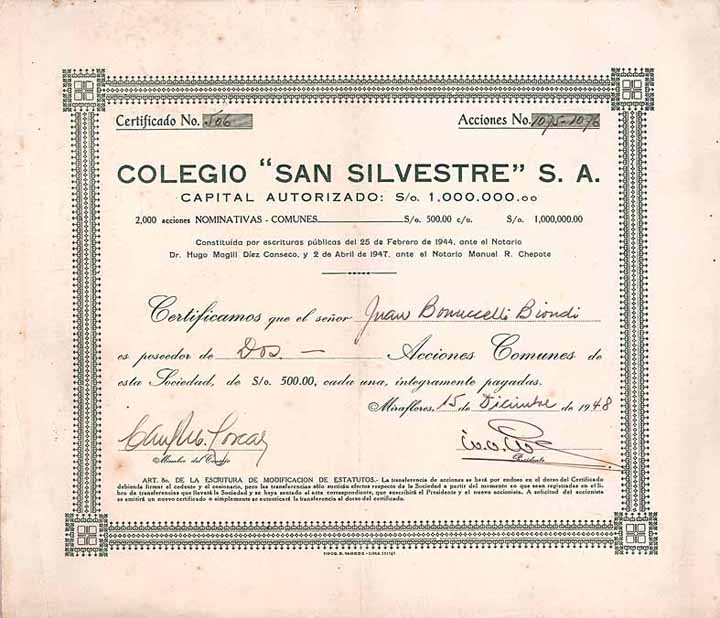 Certificado No. 506 Acciones No. 1075-1076
COLEGIO "SAN SILVESTRE" S. A.
CAPITAL AUTORIZADO: S/o. 1.000.000.oo
2,000 acciones NOMINATIVAS - COMUNES S/o. 500.00 c/u. S/o. 1,000,000.00
Constituida por escrituras públicas del 25 de Febrero de 1944, ante el Notario
Dr. Hugo Magill Diez Canseco, y 2 de Abril de 1947, ante el Notario Manuel R. Chepote
Certificamos que el señor Juan Bonuccelli Biondi
es poseedor de Dos. — Acciones Comunes de
esta Sociedad, de S/o. 500.00, cada una, íntegramente pagadas.
Miraflores, 15 de Diciembre de 1948
Miembro del Consejo Presidente
ART. 8o. DE LA ESCRITURA DE MODIFICACION DE ESTATUTOS.- La transferencia de acciones se hará por endoso en el dorso del Certificado
debiendo firmar el cedente y el cesionario, pero las transferencias sólo surtirán efectos respecto de la Sociedad a partir del momento en que sean registradas en el li-
bro de transferencias que llevará la Sociedad y se haya sentado el acta correspondiente, que suscribirá el Presidente y el nuevo accionista. A solicitud del accionista
se emitirá un nuevo certificado o simplemente se autenticará la transferencia al dorso del certificado.